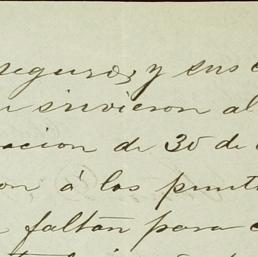 seguros, y sus
sirvieron al
acion de 30 de
on á los punt
faltan para